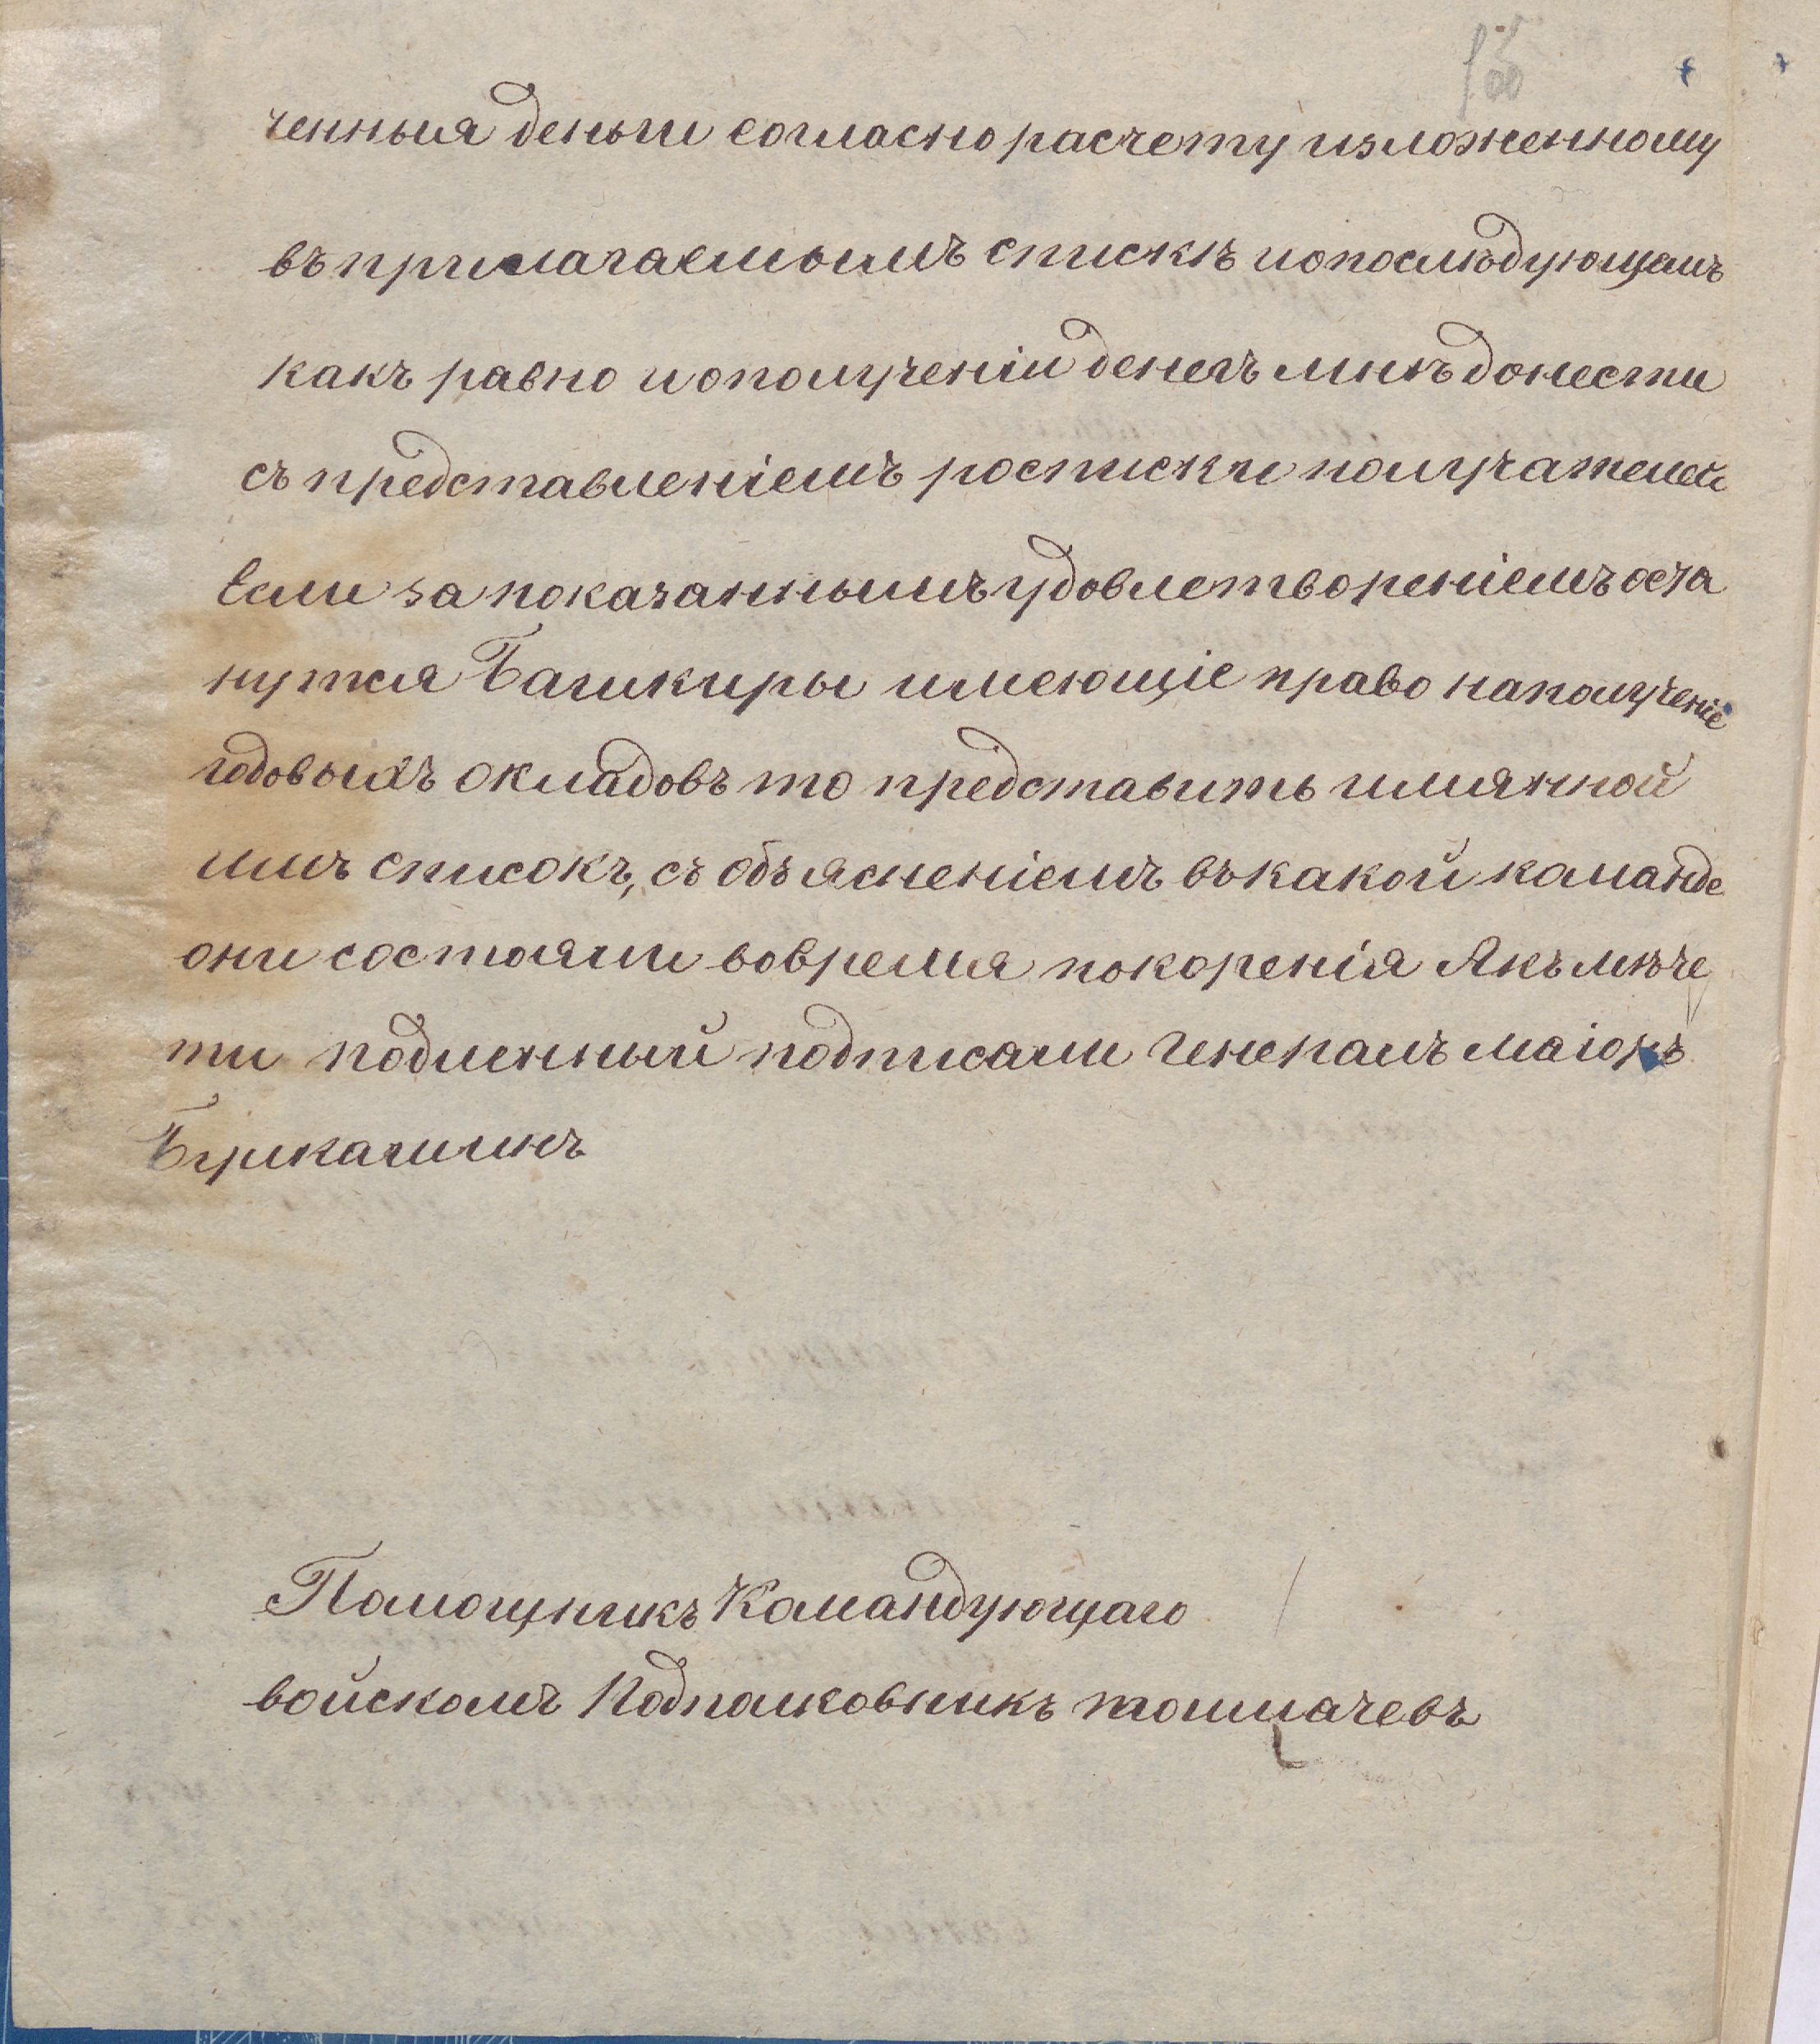 ченныя деньги согласно расчету изложенному
въ прилагаемымъ спискѣ и о послѣдующамъ
какъ равно и о полученіи денегъ мнѣ донести
съ представленіемъ росписки получателей
Если за показаннымъ удовлетвореніемъ оста
нутся Башкиры имеющіе право на полученіе
годовыхъ окладовъ то представить имянной
имъ списокъ, съ объясненіемъ въ какой команде
они состояли вовремя покоренія Акъ мѣче
ти подленный подписали Генералъ маіоръ
Беркашинъ
Помощникъ Командующаго
войскомъ Подполковникъ толмачевъ